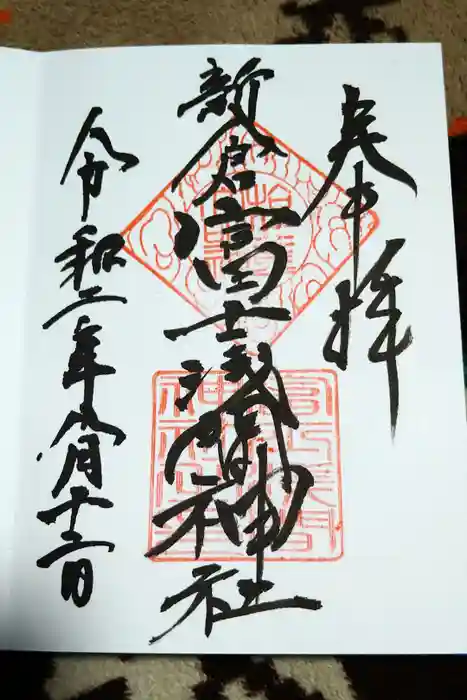 奉拝
新倉富士浅間神社
令和二年八月十二日